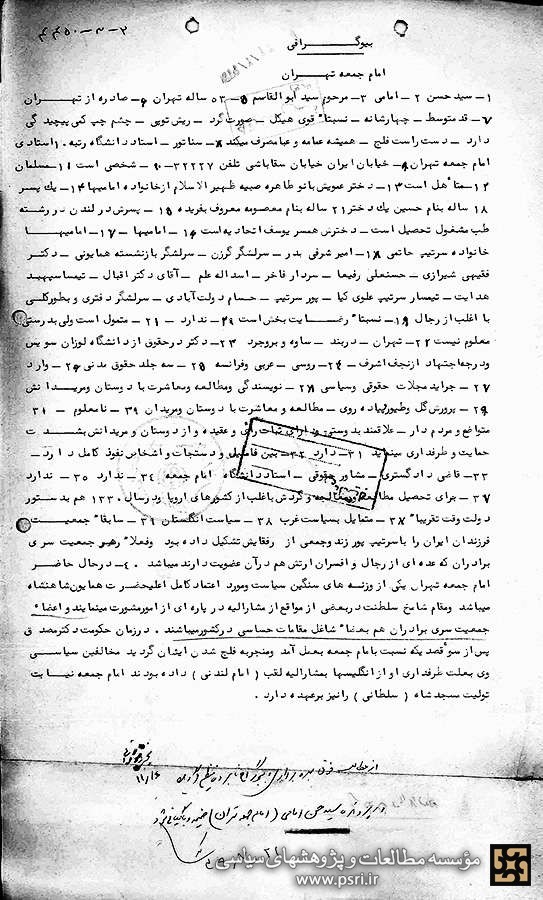 ۲-۳-۴۴۵۰
بیوگـــرافی
امام جمعه تهـران
۱ – سید حسن ۲ – امامی ۳ – مرحوم سید ابوالقاسم ۵ – ۵۳ ساله تهران ۶ – صادره از تهران
۷ – قد متوسط – چهارشانه – نسبتاً قوی هیکل – صورت گرد – ریش توپی – چشم چپ کمی پیچیدگی
دارد – دست راست فلج – همیشه عمامه و عبا مصرف میکند ۸ – سناتور – استاد دانشگاه رتبه ۱۰ استادی
امام جمعه تهران ۹ – خیابان ایران خیابان سقاباشی تلفن ۳۲۲۲۷ – ۱۰ – شخصی است ۱۱ – مسلمان
۱۲ – متأهل است ۱۳ – دختر عمویش بانو طاهره صبیه ظهیرالاسلام از خانواده امامیها ۱۴ – یک پسر
۱۸ ساله بنام حسین یک دختر ۲۱ ساله بنام معصومه معروف بفریده ۱۵ – پسرش در لندن در رشته
طب مشغول تحصیل است – دخترش همسر یوسف اتحادیه است ۱۶ – امامیها – ۱۷ – امامیها
خانواده سرتیپ حاتمی ۱۸ – امیر شرفی بدر – سرلشگر گرزن – سرلشگر بازنشسته همایونی – دکتر
فقیهی شیرازی – حسنعلی رفیعا – سردار فاخر – اسداله علم – آقای دکتر اقبال – تیمسار سپهبد
هدایت – تیمسار سرتیپ علوی کیا – پور سرتیپ – حسام دولت آبادی – سرلشگر دفتری و بطور کلی
با اغلب از رجال ۱۹ – نسبتاً رضایت بخش است ۲۰ – ندارد – ۲۱ – متمول است ولی بدرستی
معلوم نیست ۲۲ – تهران – دربند – ساوه و بروجرد ۲۳ – دکتر در حقوق از دانشگاه لوزان سویس
ودرجه اجتهاد از نجف اشرف – ۲۴ – روسی – عربی وفرانسه ۲۵ – سه جلد حقوق مدنی ۲۶ – وارد
۲۷ – جراید مجلات حقوقی وسیاسی ۲۸ – نویسندگی ومطالعه ومعاشرت با دوستان ومریدانش
۲۹ – پرورش گل وطیور پیاده روی – مطالعه و معاشرت با دوستان ومریدان ۳۰ – نامعلوم – ۳۱
متواضع و مردم دار – علاقمند بدوستی ودارای ثبات رأی و عقیده و از دوستان و مریدانش بشدت
حمایت و طرفداری مینماید ۳۱ – دارد ۳۲ – بین فامیل و دستجات و اشخاص نفوذ کامل دارد –
۳۳ – قاضی دادگستری – مشاور حقوقی – استاد دانشگاه امام جمعه ۳۴ – ندارد ۳۵ – ندارد
۳۷ – برای تحصیل مطالعه ومعالجه و گردش باغلب از کشورهای اروپا و در سال ۱۳۳۰ هم بدستور
دولت وقت تقریباً ۳۸ – متمایل بسیاست غرب ۳۸ – سیاست انگلستان ۳۹ – سابقاً جمعیت
فرزندان ایران را با سرتیپ پور زند وجمعی از رفقایش تشکیل داده بود وفعلاً رهبر جمعیت سری
برادران که عده ای از رجال و افسران ارتش هم در آن عضویت دارند میباشد ۴۰ – در حال حاضر
امام جمعه تهران یکی از وزنه های سنگین سیاست ومورد اعتماد کامل اعلیحضرت همایون شاهنشاه
میباشد ومقام شامخ سلطنت در بعضی از مواقع از مشارالیه در پاره ای از امور مشورت مینمایند و اعضاء
جمعیت سری برادران هم بعضاً شاغل مقامات حساسی در کشور میباشند . در زمان حکومت دکتر مصدق
پس از سوءقصدیکه نسبت بامام جمعه بعمل آمد ومنجر به فلج شدن ایشان گردید مخالفین سیاسی
وی بعلت طرفداری او از انگلیسها بمشارالیه لقب ( امام لندنی ) داده بودند امام جمعه نیابت
تولیت مسجد شاه ( سلطانی ) را نیز برعهده دارد .
در پرونده سید حسن امامی (امام جمعه تهران)
مؤسسه مطالعات و پژوهشهای سیاسی
www.psri.ir